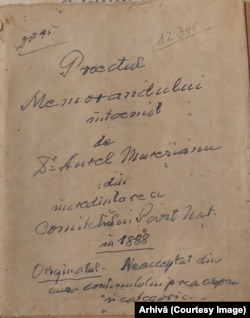 12.345
Proectul
Memorandului
întocmit
de
Dr Aurel Mureșianu
din
incredintarea
Comitetului Part. Naț.
in 1888
Originalul. Neacceptat din
cauza continutului prea aspru
si categoric.
Arhivă (Courtesy Image)